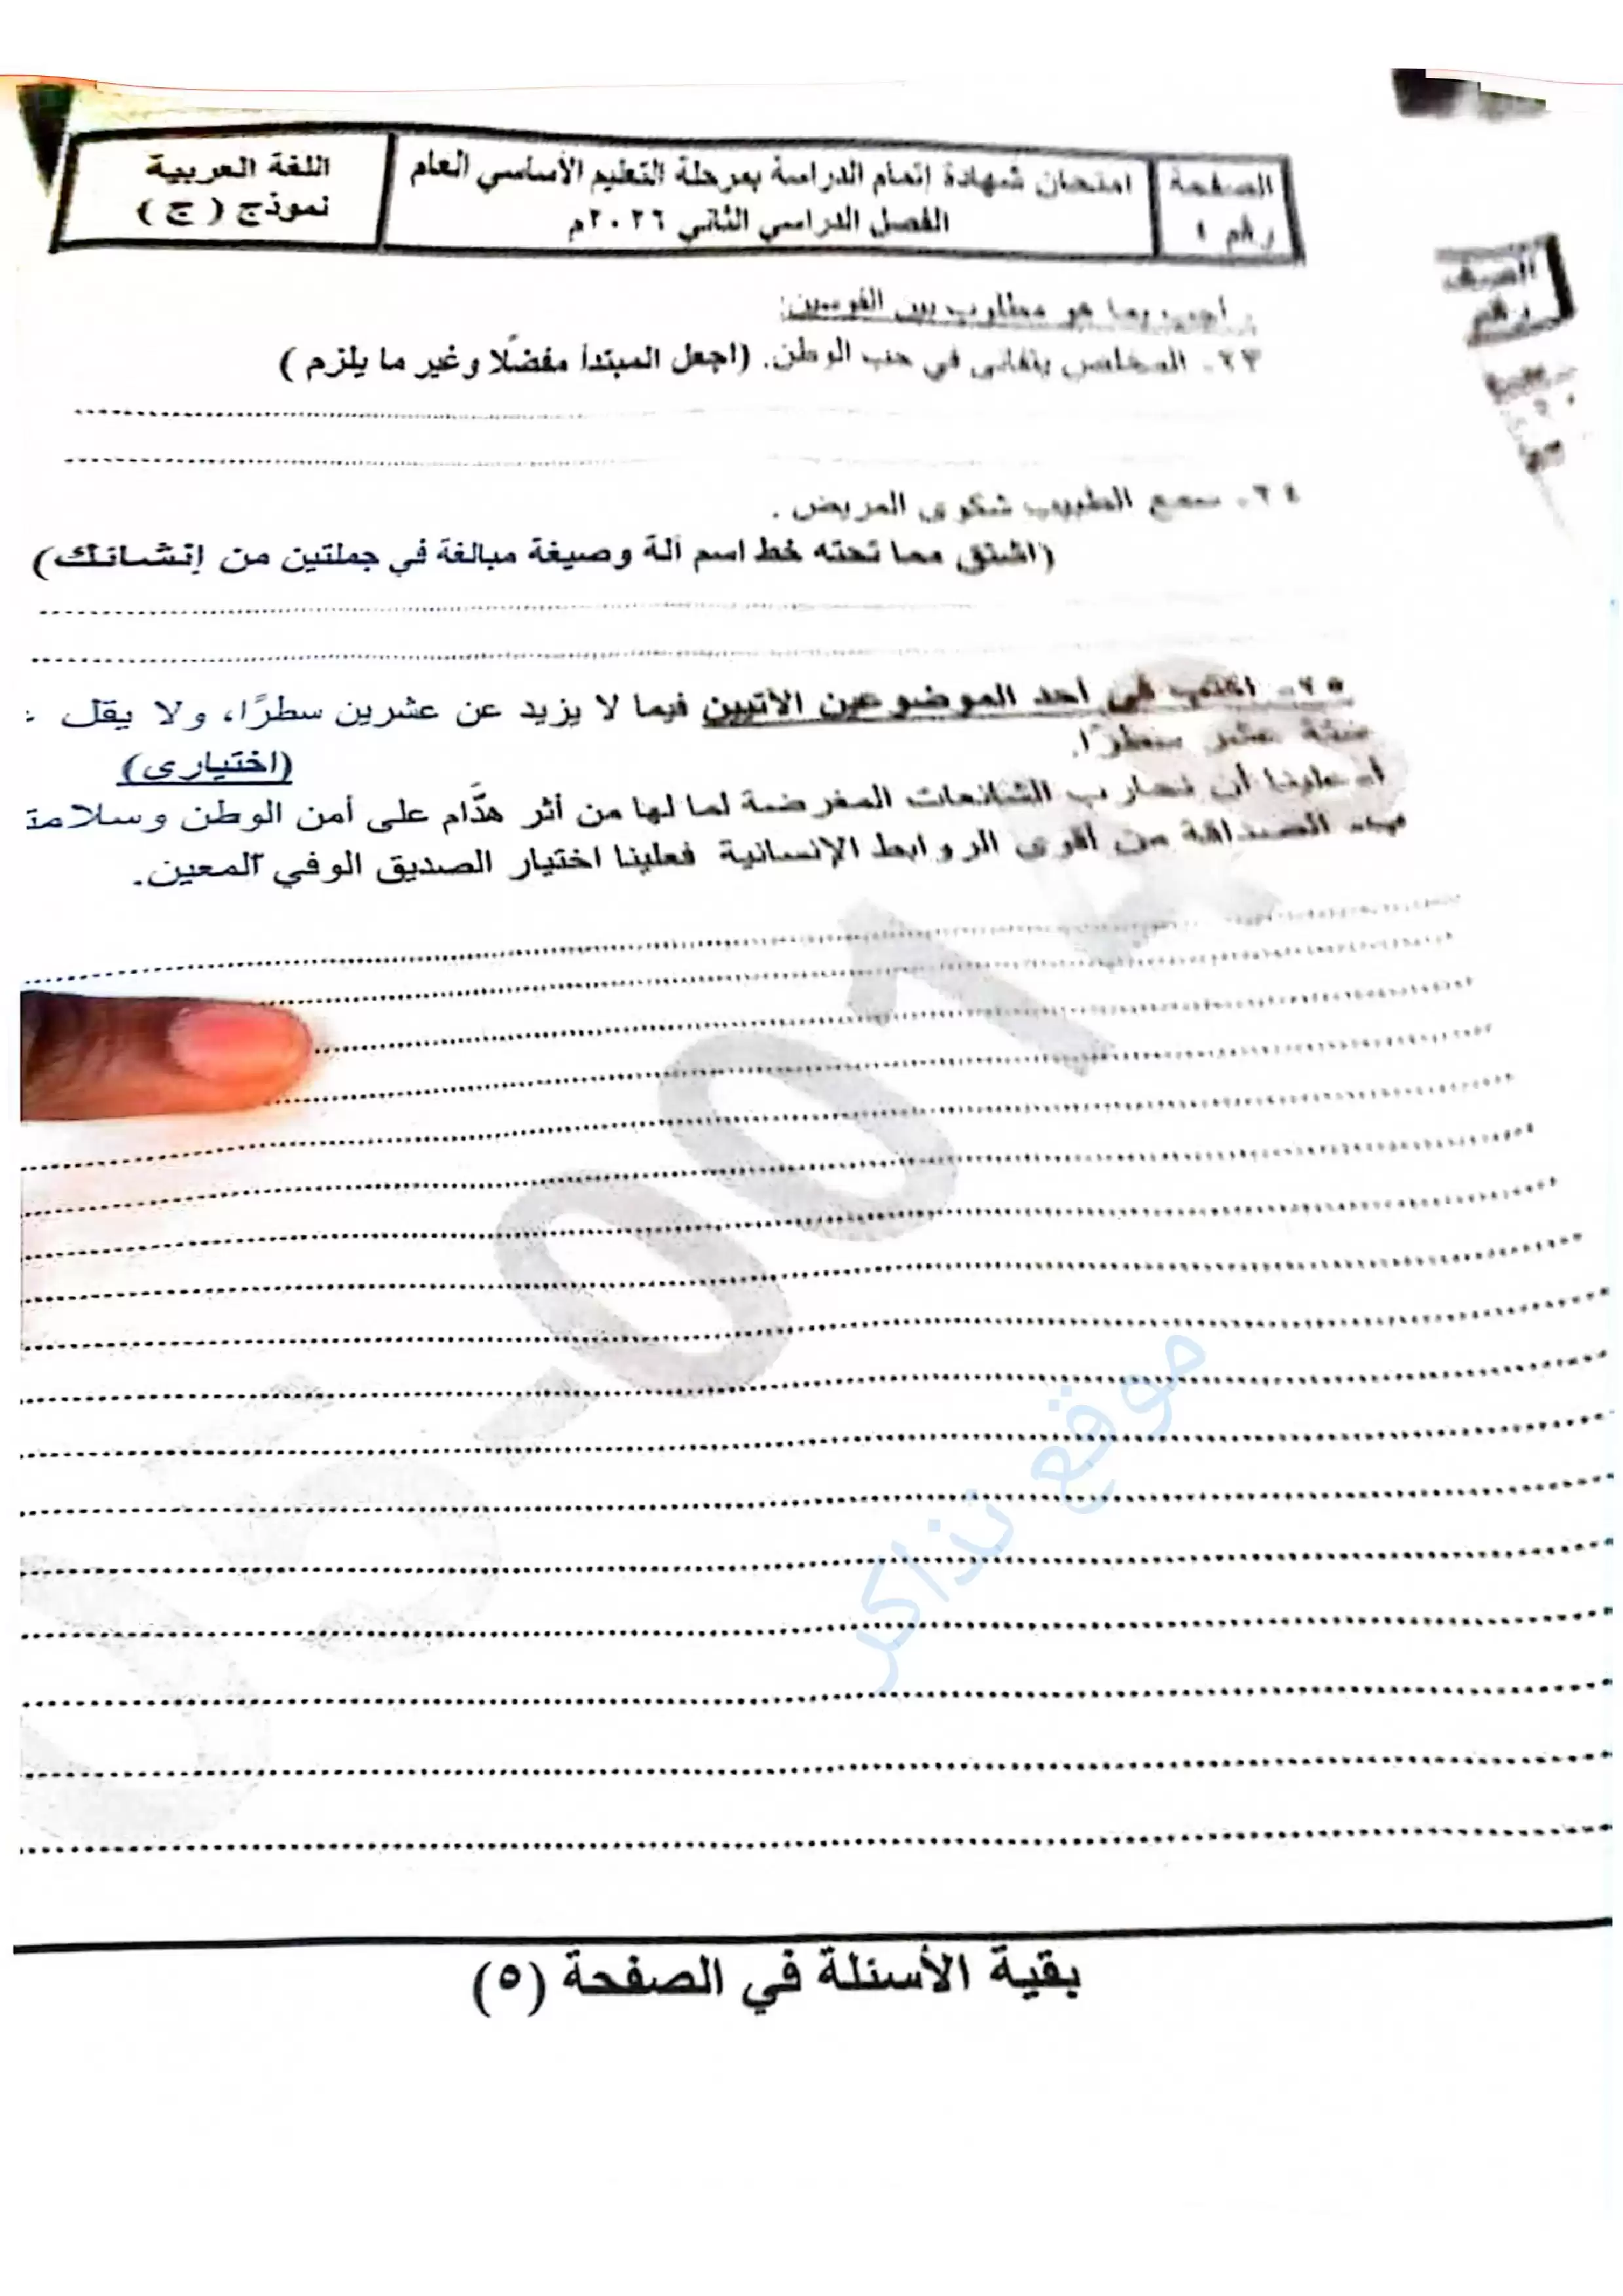 الصفحة
رقم ٤
امتحان شهادة إتمام الدراسة بمرحلة التعليم الأساسي العام
الفصل الدراسي الثاني ٢٠٢٦م
اللغة العربية
نموذج ( ج )
أجب بما هو مطلوب بين القوسين:
٢٣- المخلص يتفانى في حب الوطن. (اجعل المبتدأ مفضلًا وغير ما يلزم )
٢٤- سمع الطبيب شكوى المريض .
(اشتق مما تحته خط اسم آلة وصيغة مبالغة في جملتين من إنشائك)
٢٥- اكتب في أحد الموضوعين الآتيين فيما لا يزيد عن عشرين سطرًا، ولا يقل
ستة عشر سطرًا.
(اختياري)
أ- علينا أن نحارب الشائعات المغرضة لما لها من أثر هدَّام على أمن الوطن وسلامة
ب- الصداقة من أقوى الروابط الإنسانية فعلينا اختيار الصديق الوفي المعين.
001
موقع نذاكر
بقية الأسئلة في الصفحة (٥)